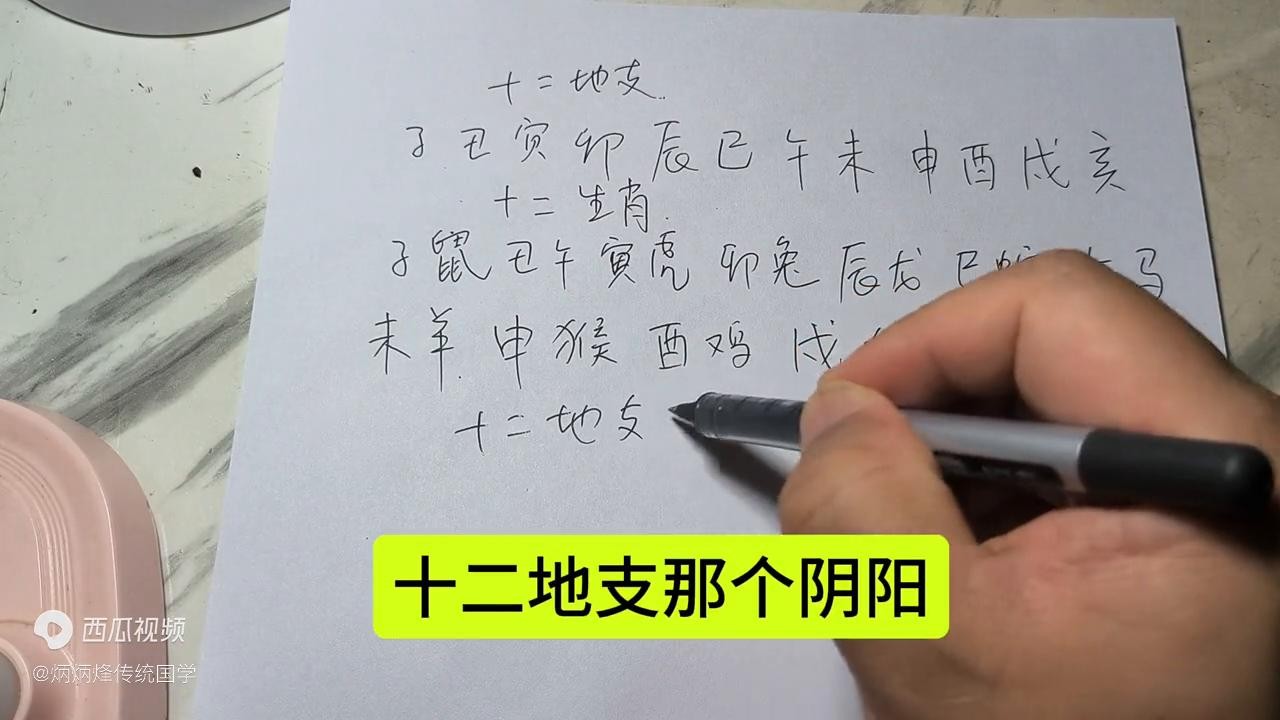 十二地支
子丑寅卯辰巳午未申酉戌亥
十二生肖
子鼠丑午寅虎卯兔辰龙巳蛇 马
未羊申猴酉鸡戌
十二地支
十二地支那个阴阳
西瓜视频
@炳炳烽传统国学